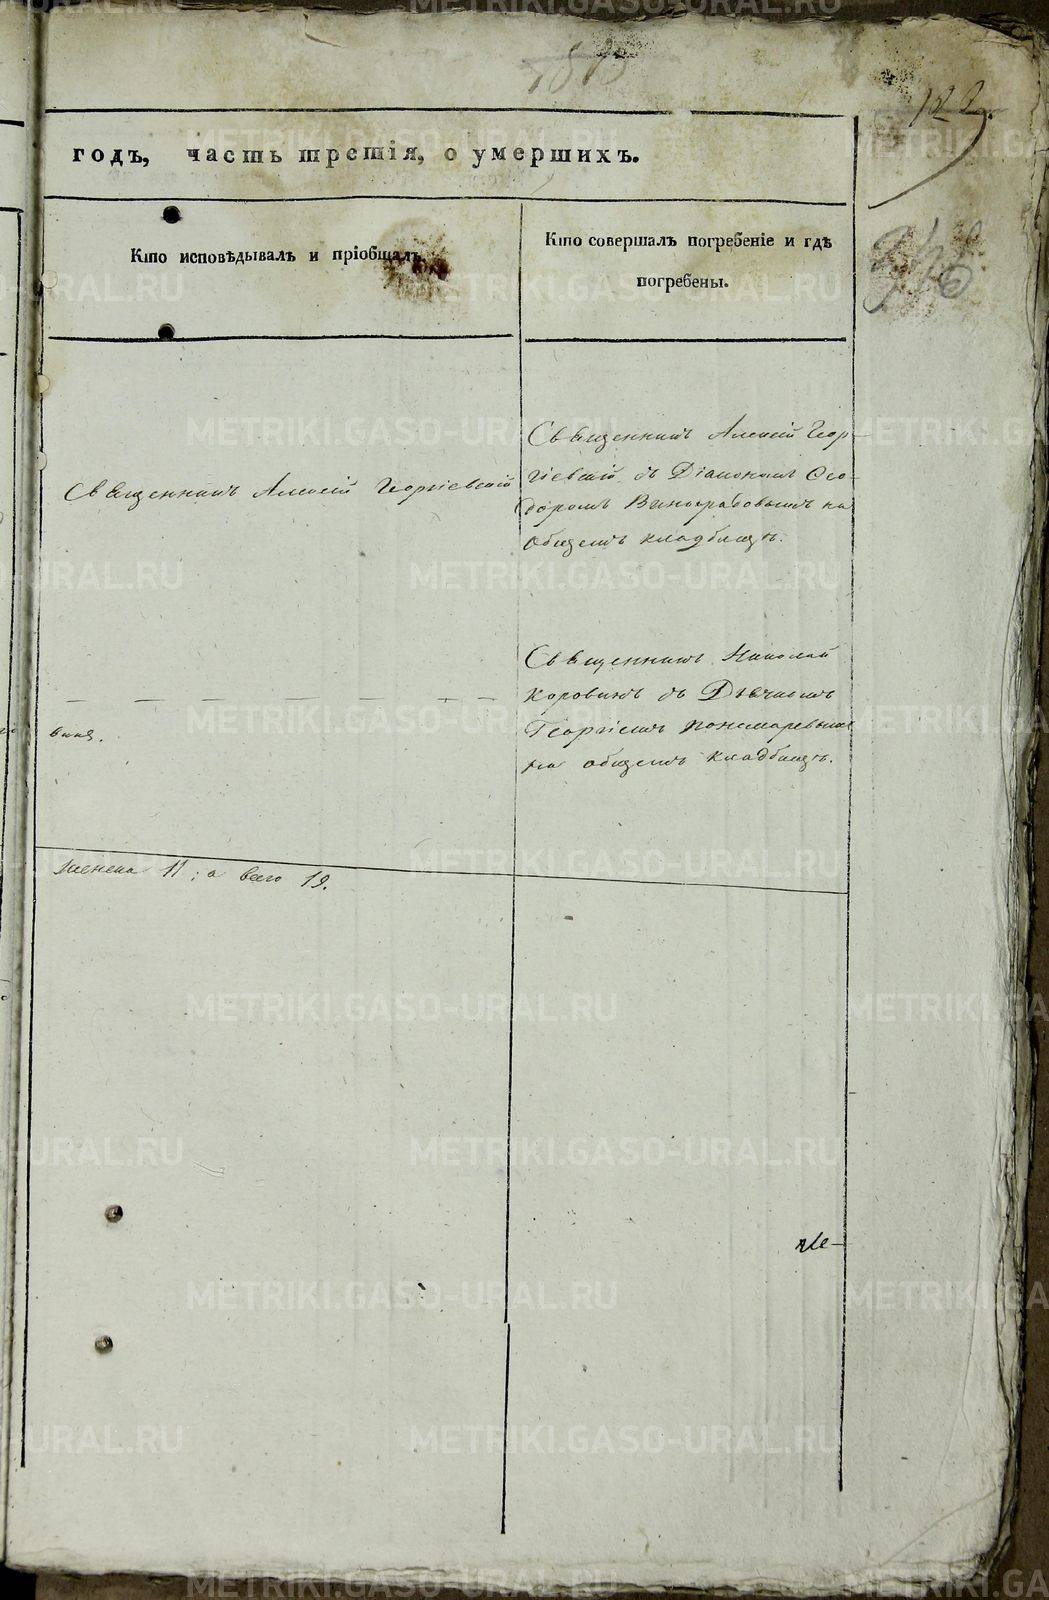 122.
годъ, часть третія, о умершихъ.
Кто исповѣдывалъ и пріобщалъ.
Кто совершалъ погребеніе и гдѣ
погребены.
Священникъ Алексій Георгіевскій
Священникъ Алексій Геор-
гіевскій съ Діакономъ Ѳео-
доромъ Виноградовымъ на
общемъ кладбищѣ.
Священникъ Николай
Коровинъ съ Дьячкомъ
Георгіемъ Пономаревымъ
на общемъ кладбищѣ.
женска 11; а всего 19.
METRIKI.GASO-URAL.RU